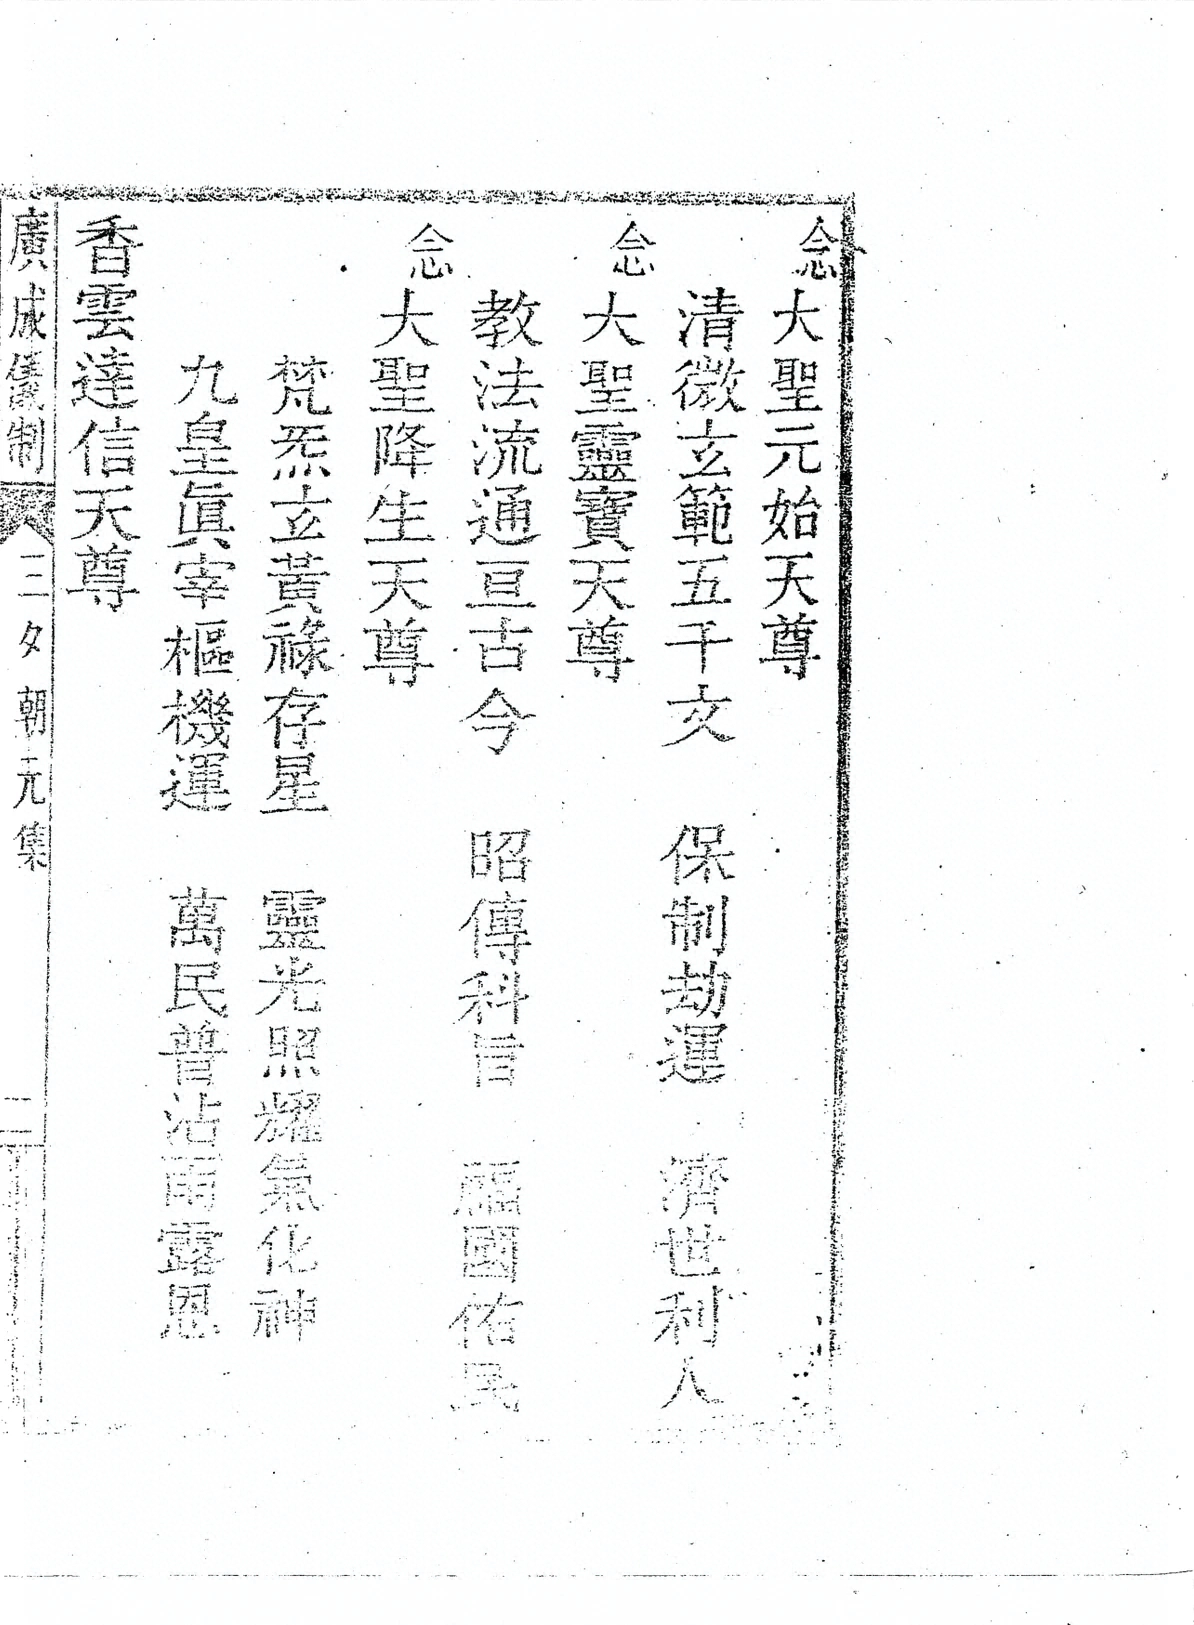 念大聖元始天尊
清微玄範五千文　保制劫運　濟世利人
念大聖靈寶天尊
教法流通亘古今　昭傳科旨　福國佑民
念大聖降生天尊
梵炁玄黃祿存星　靈光照耀氣化神
九皇眞宰樞機運　萬民普沾雨露恩
香雲達信天尊
廣成儀制　三夕朝元集　二